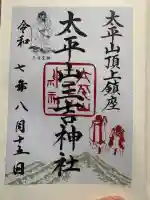 太平山頂上鎮座
太平山三吉神社
令和
七年八月十五日